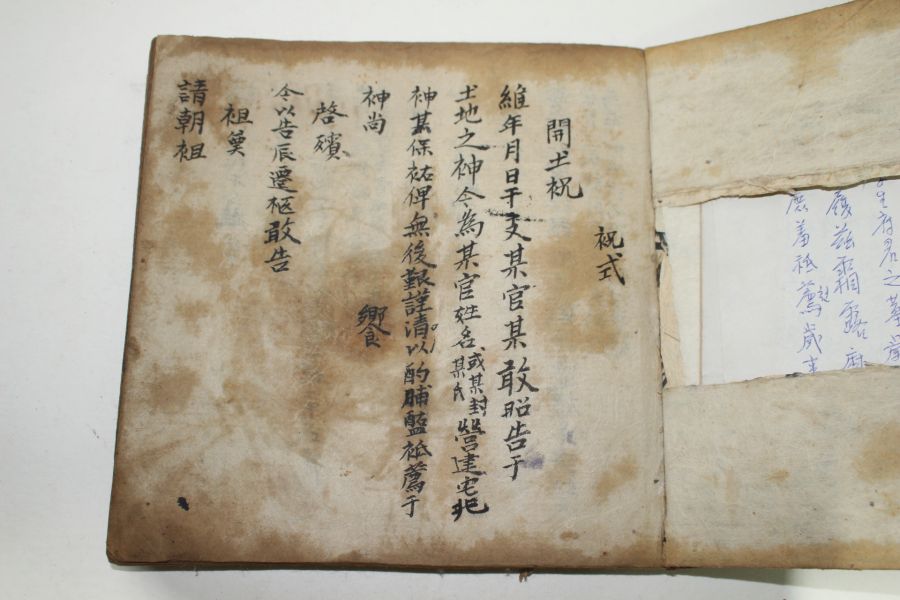 生府君之墓
履茲霜露
庶羞祗薦歲事
祝式
開土祝
維年月日干支某官某敢昭告于
土地之神今為某官姓名或某封某氏營建宅兆
神其保祐俾無後艱謹清以酌脯醢祗薦于
神尚 饗
啓殯
今以告辰遷柩敢告
祖奠
請朝祖